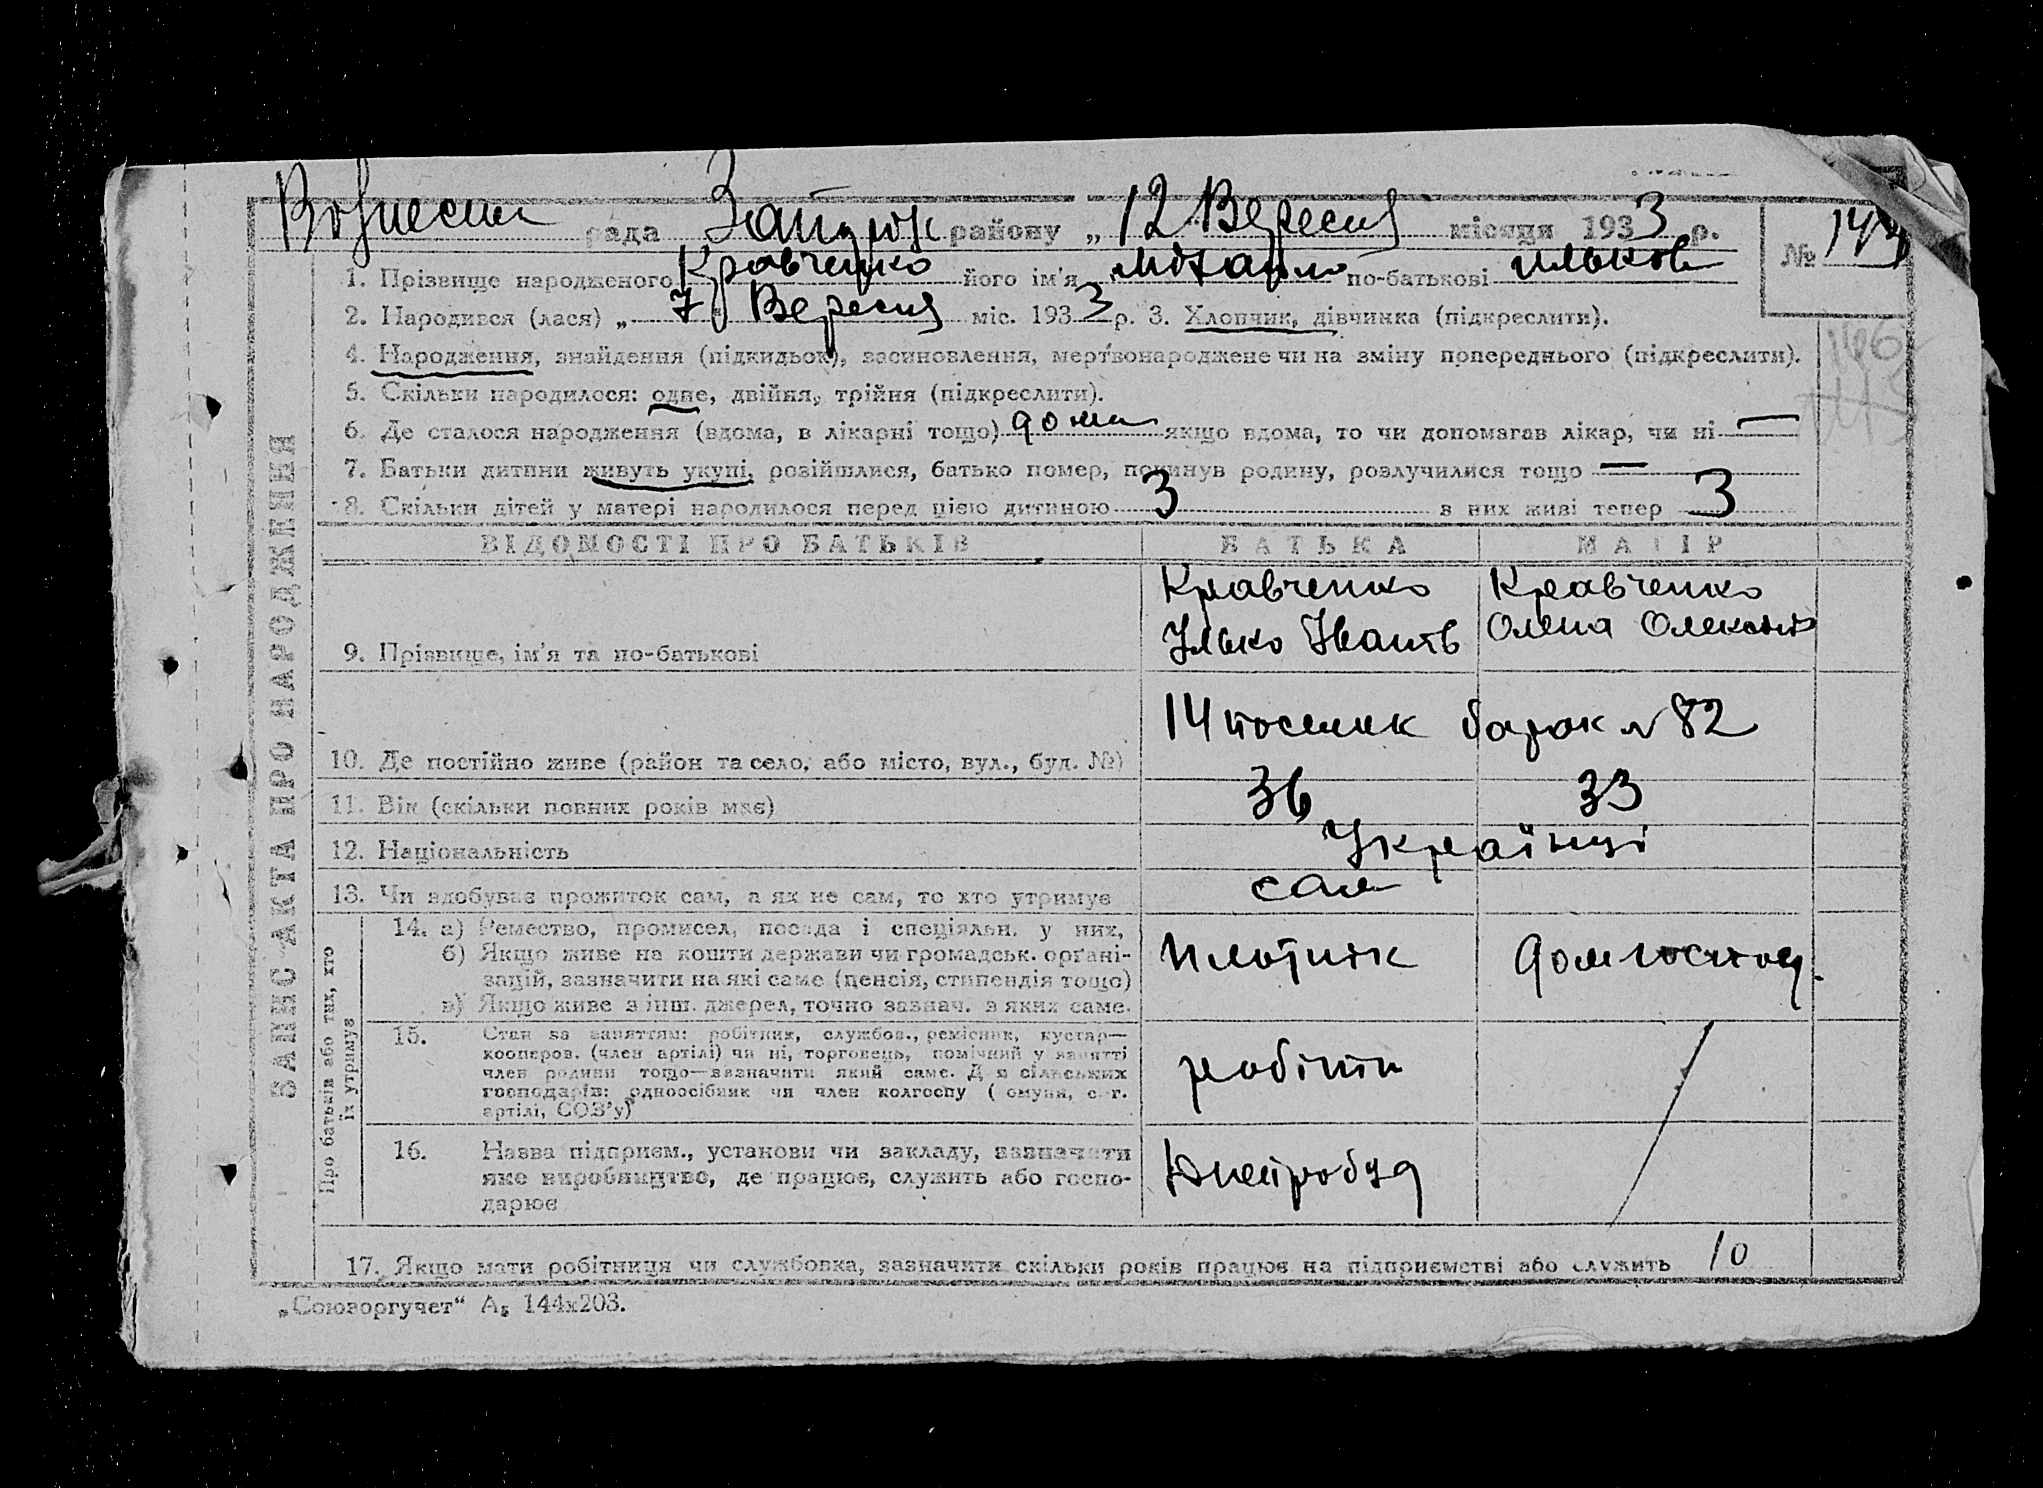 Вознесен рада Запорож району „ 12 Вересня місяця 1933 р.
№
1. Прізвище народженого Кравченко його ім'я Михайло по-батькові Ильков
2. Народився (лася) „ 7 Вересня міс. 1933 р. 3. Хлопчик, дівчинка (підкреслити).
4. Народження, знайдення (підкидьок), засиновлення, мертвонароджене чи на зміну попереднього (підкреслити).
5. Скільки народилося: одне, двійня, трійня (підкреслити).
6. Де сталося народження (вдома, в лікарні тощо) дома якщо вдома, то чи допомагав лікар, чи ні —
7. Батьки дитини живуть укупі, розійшлися, батько помер, покинув родину, розлучилися тощо —
8. Скільки дітей у матері народилося перед цією дитиною 3 з них живі тепер 3
ЗАПИС АКТА ПРО НАРОДЖЕННЯ
ВІДОМОСТІ ПРО БАТЬКІВ БАТЬКА МАТІР
Кравченко Кравченко
9. Прізвище, ім'я та по-батькові Ілько Іванів Олена Олексіїв
14 поселик барак № 82
10. Де постійно живе (район та село, або місто, вул., буд. №)
11. Вік (скільки повних років має) 36 33
12. Національність Українці
13. Чи здобуває прожиток сам, а як не сам, то хто утримує сам
Про батьків або тих, хто їх утримує
14. а) Ремество, промисел, посада і спеціяльн. у них,
б) Якщо живе на кошти держави чи громадськ. органі-
зацій, зазначити на які саме (пенсія, стипендія тощо)
в) Якщо живе з інш. джерел, точно зазнач. з яких саме.
Плотник домгоспод.
15. Стан за заняттям: робітник, службов., ремісник, кустар—
кооперов. (член артілі) чи ні, торговець, помічний у занятті
член родини тощо—зазначити який саме. Для сільських
господарів: одноосібник чи член колгоспу (комуни, с.-г.
артілі, СОЗ'у)
робітн
16. Назва підприєм., установи чи закладу, зазначити
яке виробництво, де працює, служить або госпо-
дарює
Днепробуд
17. Якщо мати робітниця чи службовка, зазначити скільки років працює на підприємстві або служить 10
„Союзоргучет“ А₅ 144х203.